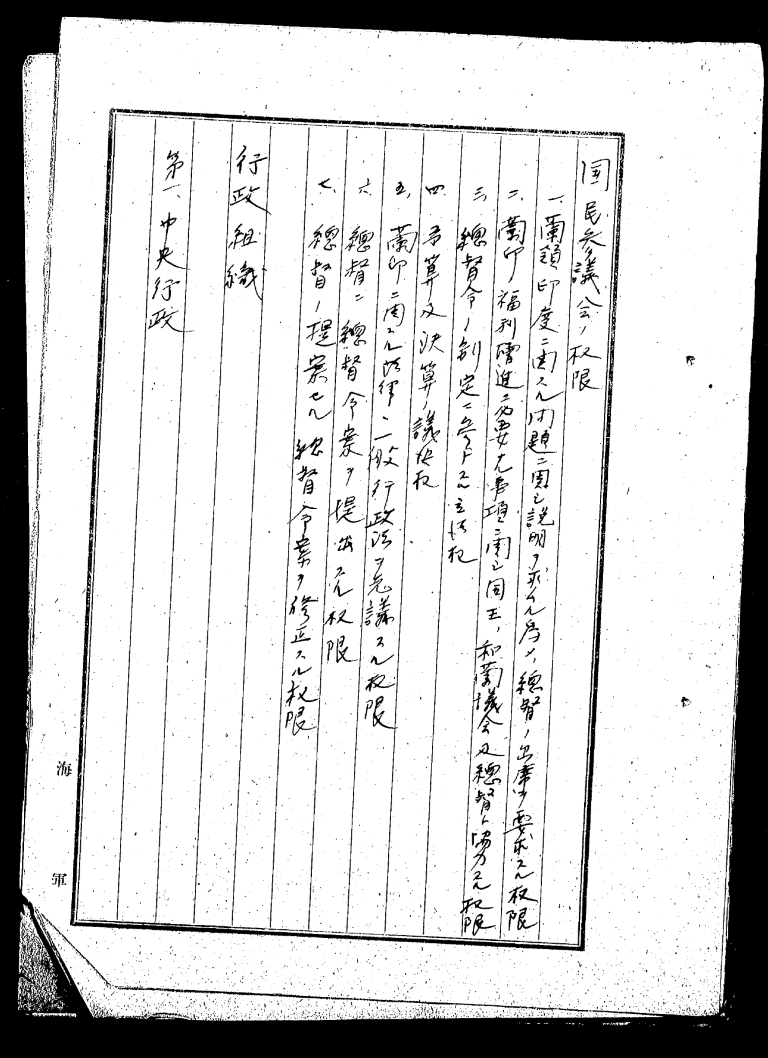 国民参議会ノ权限
一、蘭領印度ニ関スル問題ニ関シ説明ヲ求ムル為メ、總督ノ出席ヲ要求スル权限
二、蘭印ノ福利増進ニ必要ナル事項ニ関シ国王、和蘭議会及總督ト協力スル权限
三、總督令ノ制定ニ参与スル立法权
四、予算及決算ノ議決权
五、蘭印ニ関スル法律、一般行政法ヲ先議スル权限
六、總督ニ總督令案ヲ提出スル权限
七、總督ノ提案セル總督令案ヲ修正スル权限
行政組織
第一、中央行政
海軍